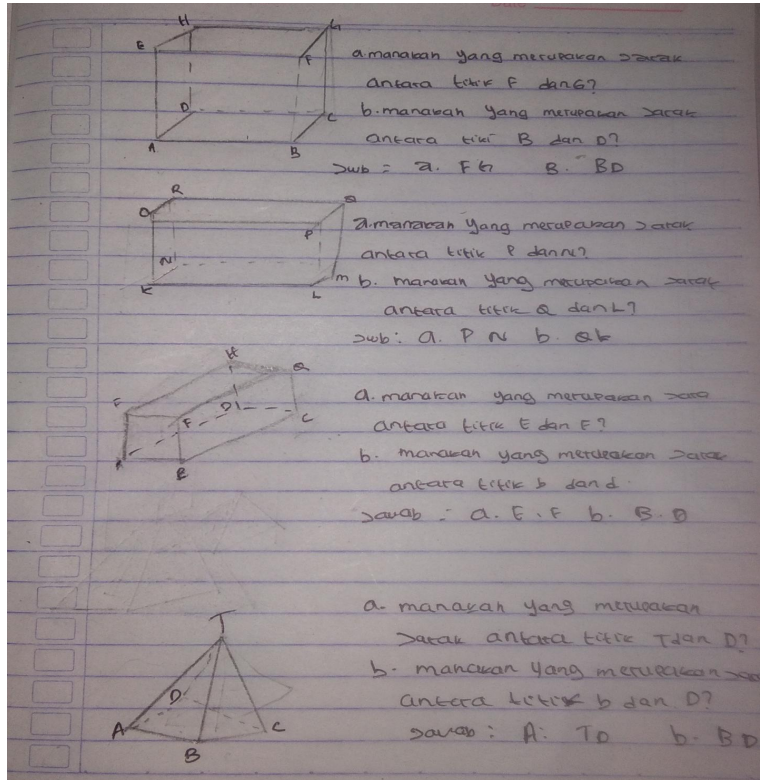 H
G
E
F
D
C
A
B
a. manakah yang merupakan Jarak
antara titik F dan G?
b. manakah yang merupakan Jarak
antara titik B dan D?
Jwb = a. FG B. BD
R
Q
O
P
N
M
K
L
a. manakah yang merupakan Jarak
antara titik P dan N?
b. manakah yang merupakan Jarak
antara titik Q dan L?
Jwb : a. P N b. QK
H
G
E
F
D
C
A
B
a. manakah yang merupakan Jara
antara titik E dan F?
b. manakah yang merupakan Jarak
antara titik b dan d.
Jawab : a. E.F b. B.D
T
D
A
C
B
a. manakah yang merupakan
Jarak antara titik T dan D?
b. manakah yang merupakan Jara
antara titik b dan D?
Jawab : A: TD b. BD